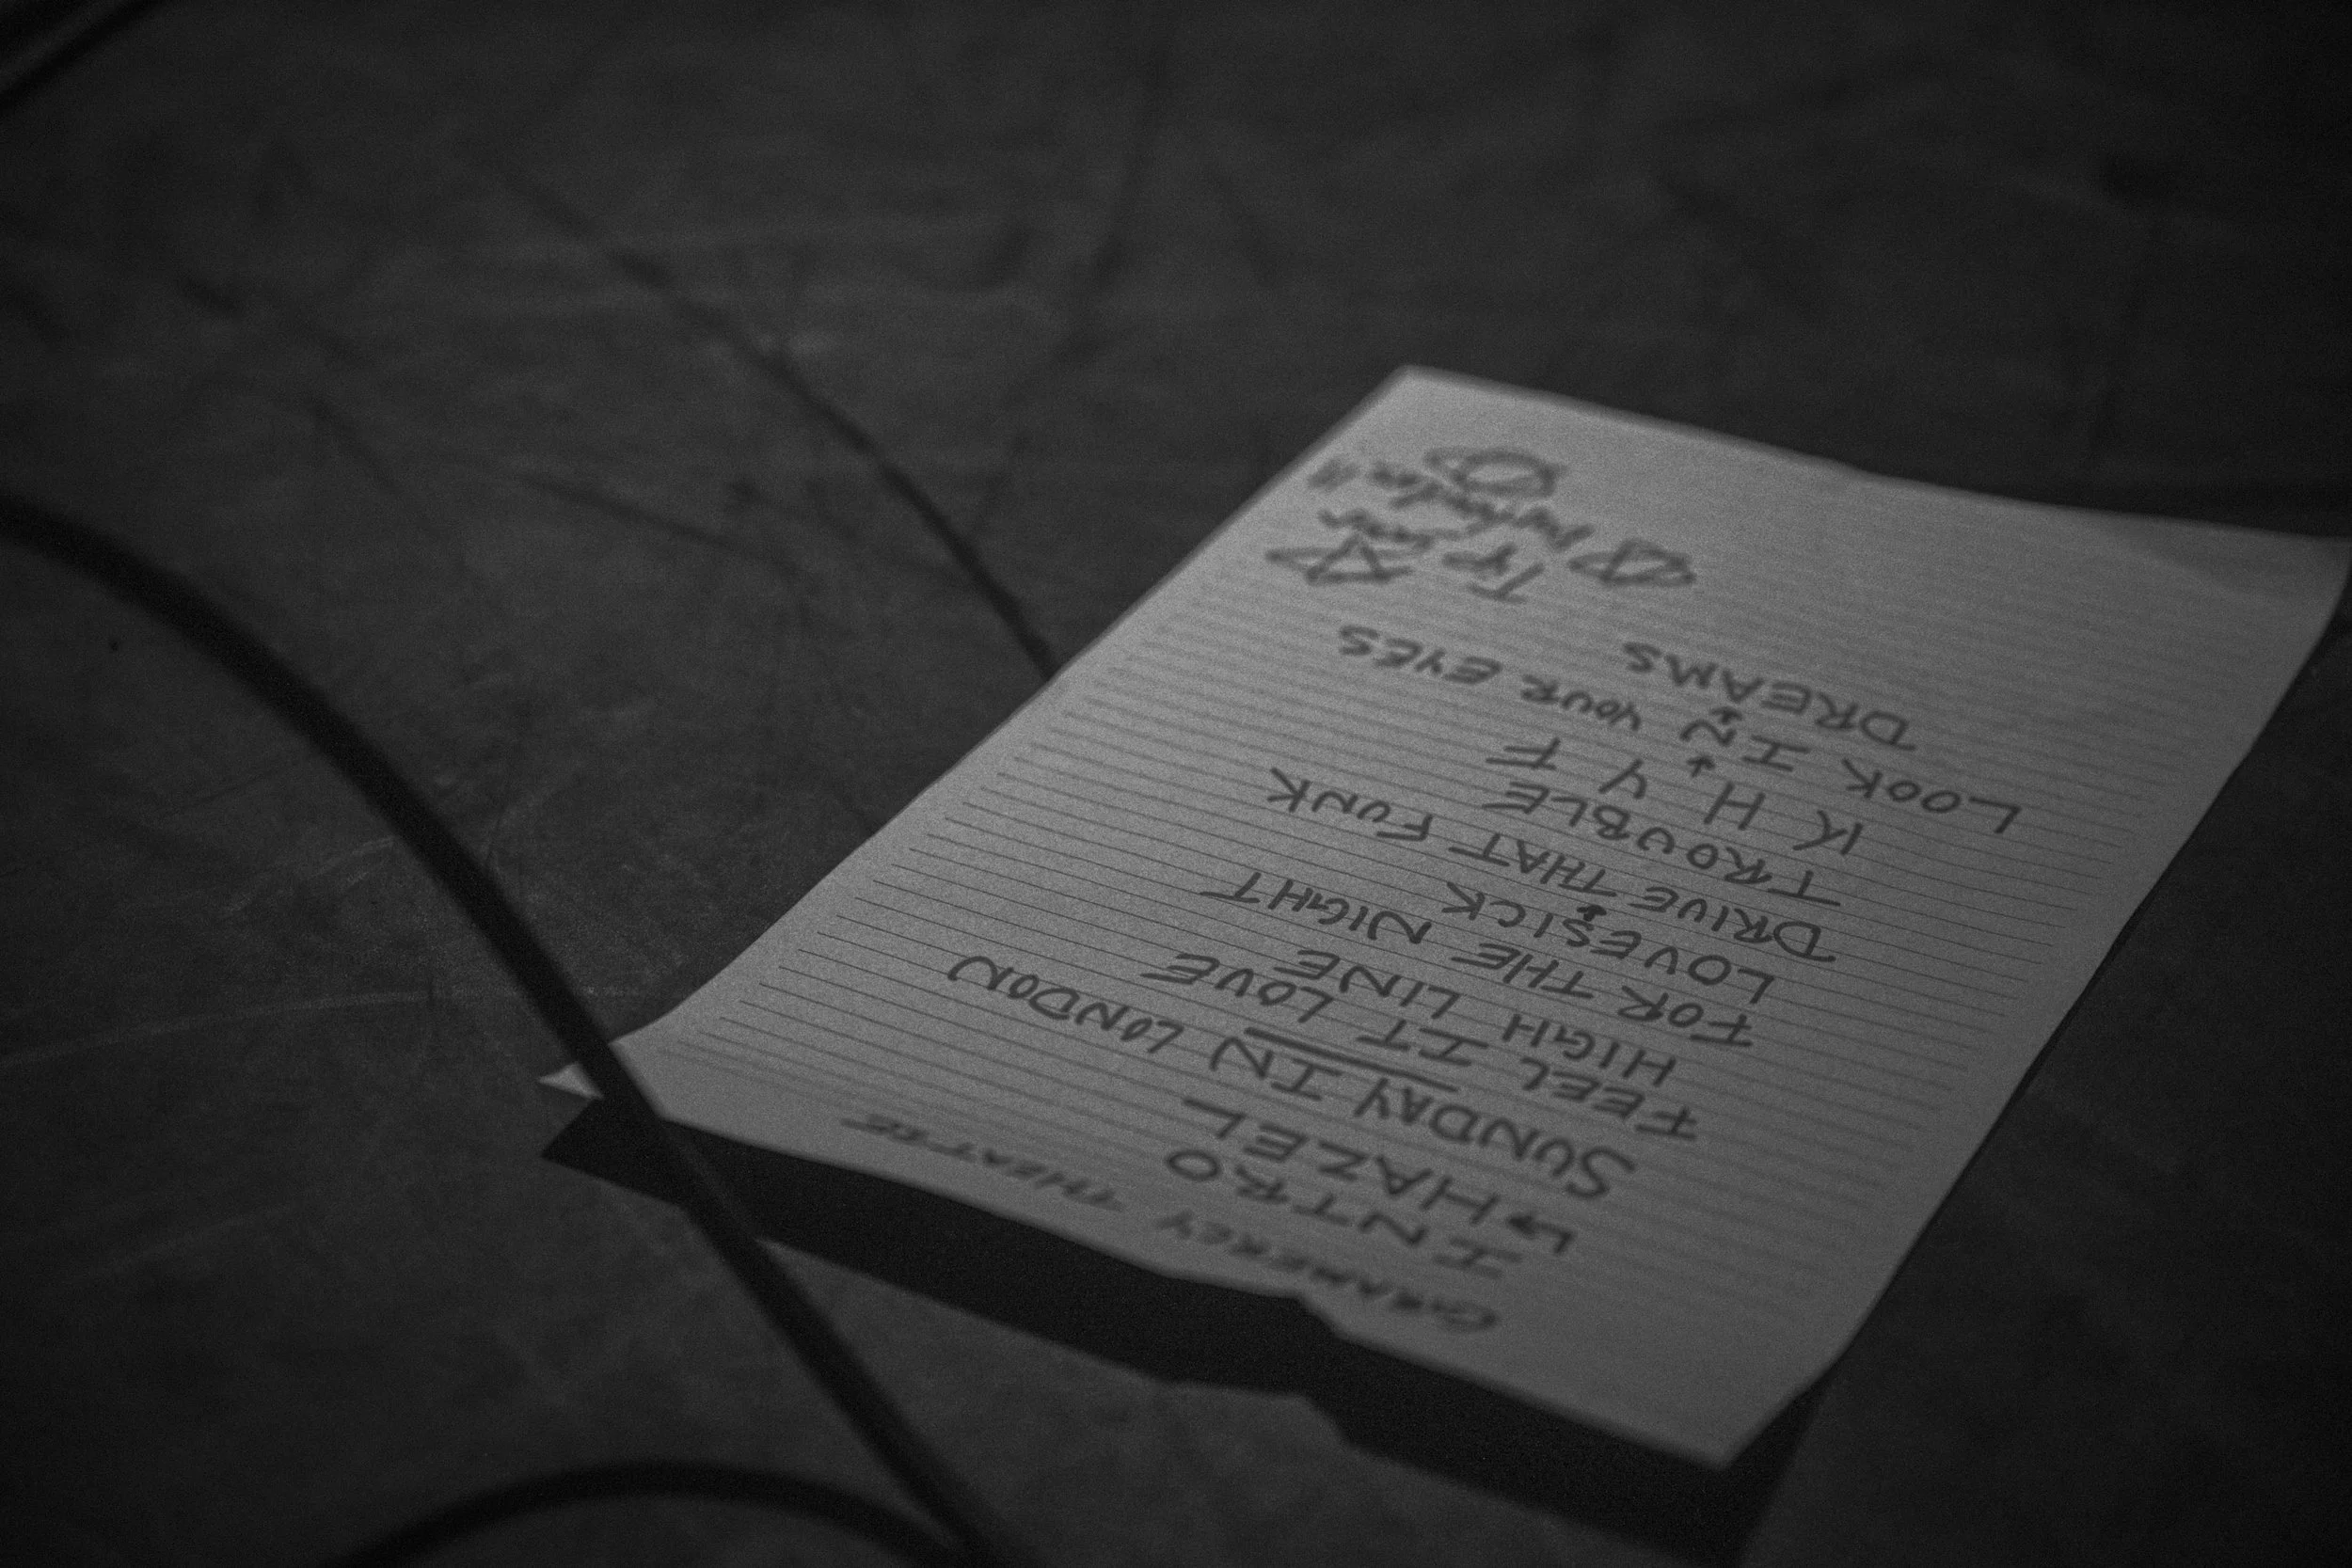 GRAMERCY THEATRE
INTRO
↳ HAZEL
SUNDAY IN LONDON
FEEL IT LOVE
HIGH LINE
FOR THE NIGHT
LOVESICK
DRIVE THAT FUNK
TROUBLE
K H Y F
LOOK IN YOUR EYES
DREAMS
Tip your
bartender!!